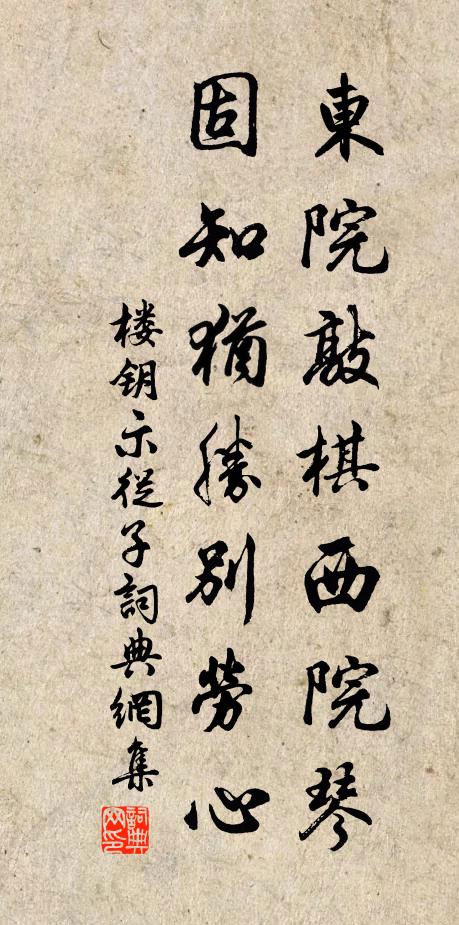 東院敲棋西院琴
固知猶勝别勞心
楼钥示從子詞典網集
詞典网印